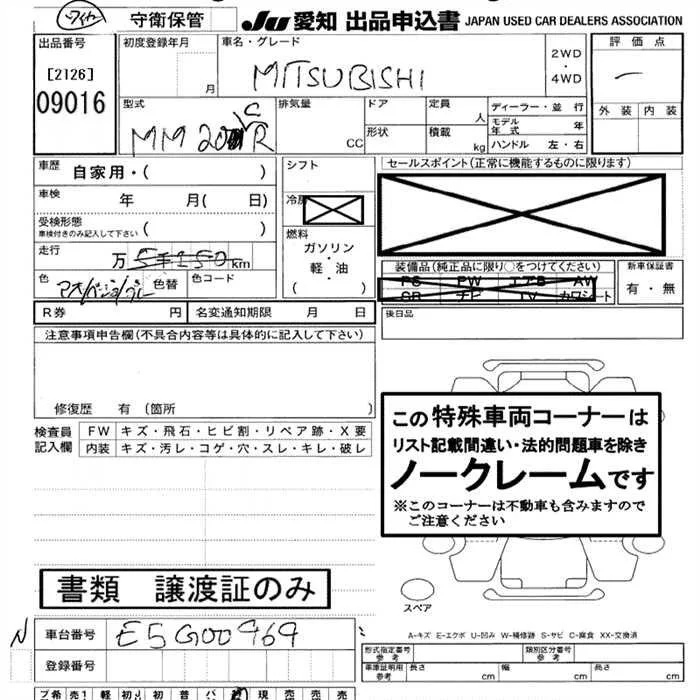 ワイヤー 守衛保管 JU 愛知 出品申込書 JAPAN USED CAR DEALERS ASSOCIATION
出品番号 初度登録年月 車名・グレード 評価点
[2126] 月 MITSUBISHI 2WD・4WD
09016 外装 内装
型式 排気量 ドア 定員 人 ディーラー・並行
MM20 CR CC 形状 積載 kg モデル年式 年
ハンドル 左・右
車歴 自家用・( ) シフト セールスポイント(正常に機能するものに限ります)
車検 年 月( 日) 冷房
受検形態 車検付きのみ記入して下さい ( ) 燃料
走行 万 km ガソリン・軽・油 ( )
装備品(純正品に限り○をつけてください) 新車保証書
PS PW エアB AW 有・無
SR ナビ TV カワシート
色 色替 色コード
R券 円 名変通知期限 月 日 後日品
注意事項申告欄(不具合内容等は具体的に記入して下さい)
修復歴 有 (箇所 )
検査員記入欄 FW キズ・飛石・ヒビ割・リペア跡・X要
内装 キズ・汚レ・コゲ・穴・スレ・キレ・破レ
この特殊車両コーナーは
リスト記載間違い・法的問題車を除き
ノークレームです
※このコーナーは不動車も含みますので
ご注意ください
書類 譲渡証のみ
スペア
N 車台番号 E5G00969
登録番号
A-キズ E-エクボ U-凹み W-補修跡 S-サビ C-腐食 XX-交換済
形式指定番号 参考 類別区分番号 参考
車庫証明用 参考 長さ cm 幅 cm 高さ cm